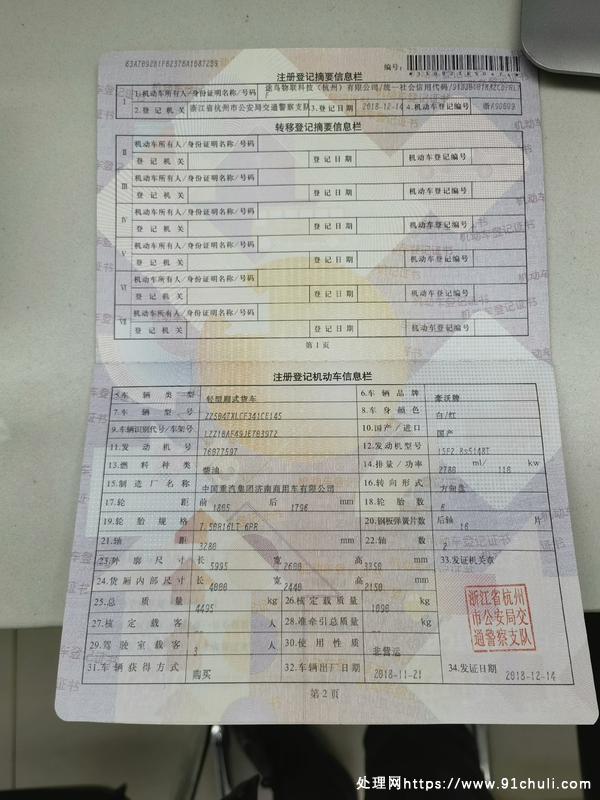 编号:
注册登记摘要信息栏
Ⅰ 1.机动车所有人/身份证明名称/号码 途鸟物联科技（杭州）有限公司/统一社会信用代码/
2.登记机关 浙江省杭州市公安局交通警察支队 3.登记日期 2018-12-14 4.机动车登记编号
转移登记摘要信息栏
Ⅱ 机动车所有人/身份证明名称/号码
登记机关 登记日期 机动车登记编号
Ⅲ 机动车所有人/身份证明名称/号码
登记机关 登记日期 机动车登记编号
Ⅳ 机动车所有人/身份证明名称/号码
登记机关 登记日期 机动车登记编号
Ⅴ 机动车所有人/身份证明名称/号码
登记机关 登记日期 机动车登记编号
Ⅵ 机动车所有人/身份证明名称/号码
登记机关 登记日期 机动车登记编号
Ⅶ 机动车所有人/身份证明名称/号码
登记机关 登记日期 机动车登记编号
第1页
注册登记机动车信息栏
5.车辆类型 轻型厢式货车 6.车辆品牌 豪沃牌
7.车辆型号 ZZ5047XLCF341CE145 8.车身颜色 白/红
9.车辆识别代号/车架号 10.国产/进口 国产
11.发动机号 76877597 12.发动机型号
13.燃料种类 柴油 14.排量/功率 2780 ml/ kw
15.制造厂名称 中国重汽集团济南商用车有限公司 16.转向形式 方向盘
17.轮距 前 后 mm 18.轮胎数 6
19.轮胎规格 7.50R16LT 6PR 20.钢板弹簧片数 后轴 片
21.轴距 3280 mm 22.轴数 2
23.外廓尺寸 长 5995 宽 高 3350 mm 33.发证机关章
24.货厢内部尺寸 长 宽 高 mm
25.总质量 4495 kg 26.核定载质量 kg
27.核定载客 人 28.准牵引总质量 kg
浙江省杭州市公安局交通警察支队
29.驾驶室载客 3 人 30.使用性质 非营运
31.车辆获得方式 购买 32.车辆出厂日期 2018-11-21 34.发证日期 2018-12-14
第2页
处理网https://www.91chuli.com